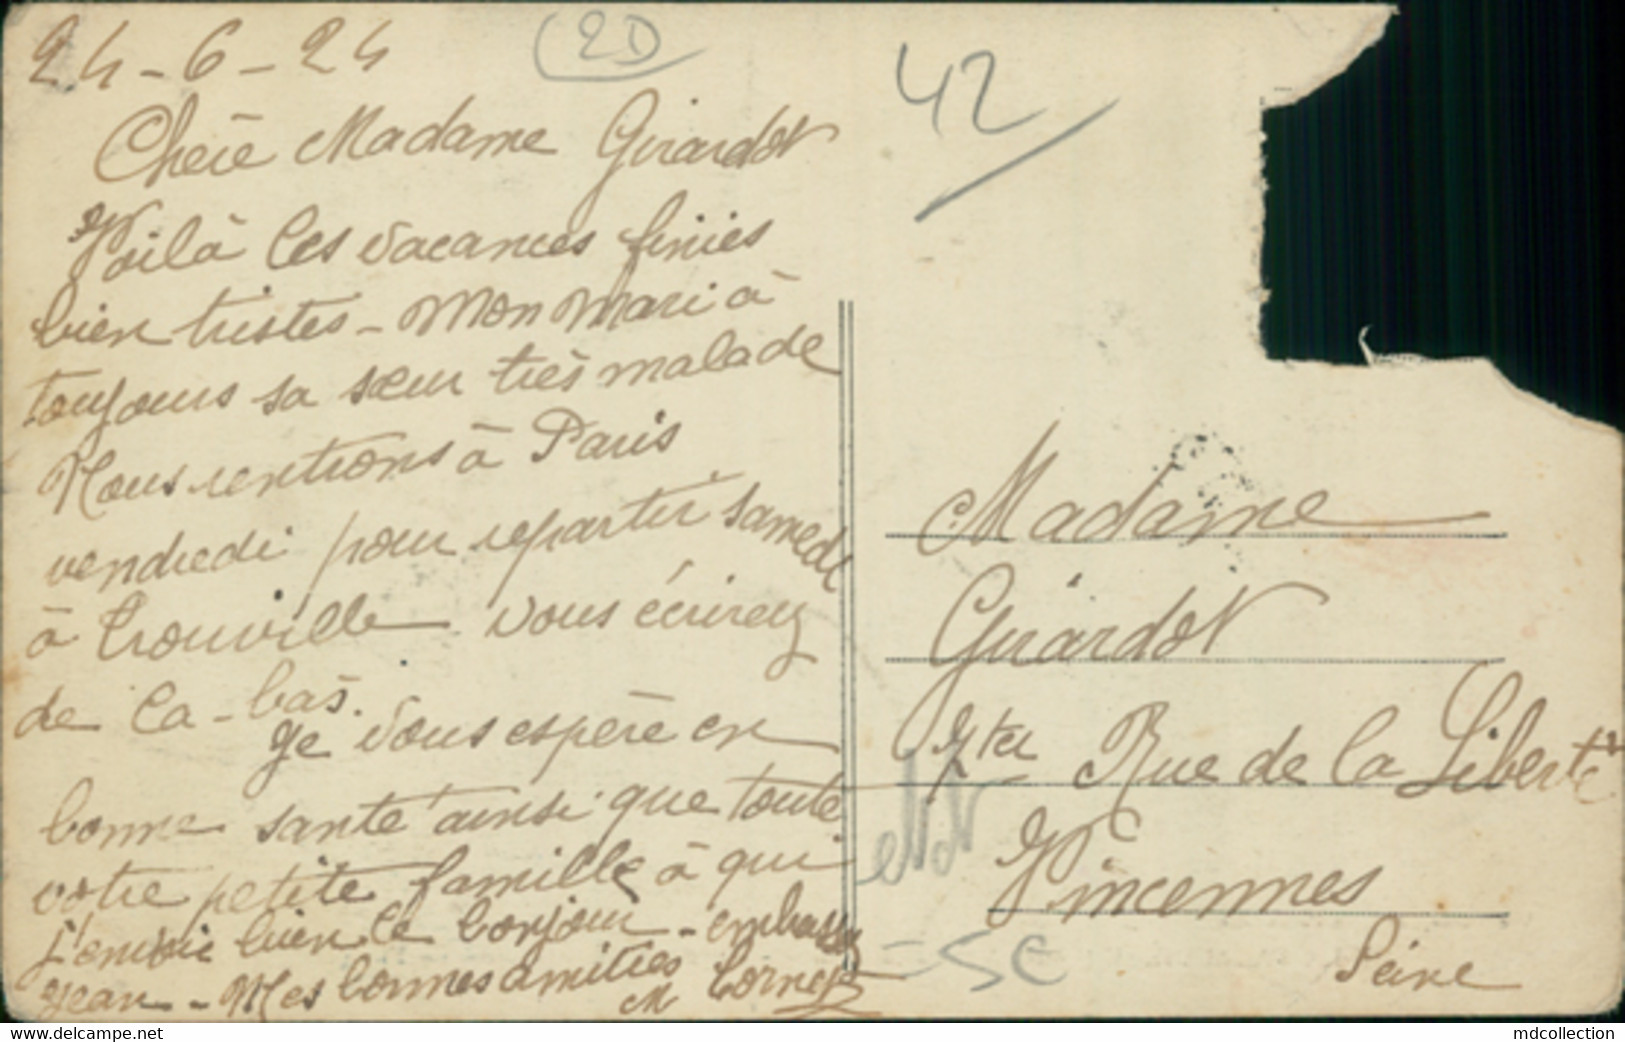 24-6-24
2D
42
Chère Madame Girardot
Voilà les vacances finies
bien tristes - Mon Mari à
toujours sa sœur très malade
Nous rentrons à Paris
vendredi pour repartir samedi
à Trouville vous écrirez
de la-bas.
Je vous espère en
bonne santé ainsi que toute
votre petite famille à qui
j'envoie bien le bonjour - embassez
Jean - Mes bonnes amitiés
M
Madame
Girardot
7ter Rue de la Liberté
Vincennes
Seine
www.delcampe.net
mdcollection